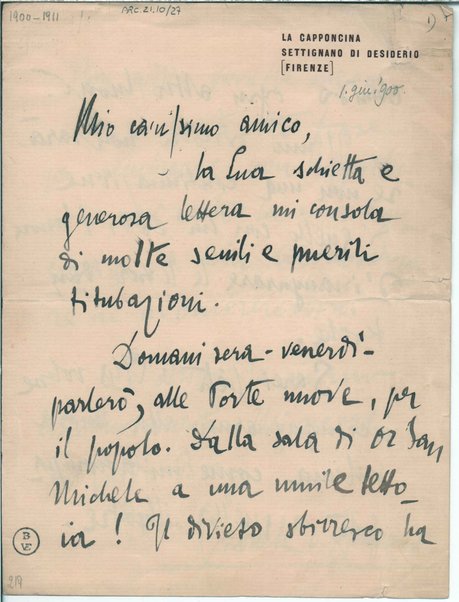 1900-1911
ARC 21.10/27
1)
LA CAPPONCINA
SETTIGNANO DI DESIDERIO
[FIRENZE]
1. giu. 900.
Mio carissimo amico,
la Sua schietta e
generosa lettera mi consola
di molte senili e puerili
titubazioni.
Domani sera - venerdì -
parlerò, alle Porte nuove, per
il popolo. Dalla sala di Or San
Michele a una umile tetto-
ia! Il divieto sbirresco ha
219